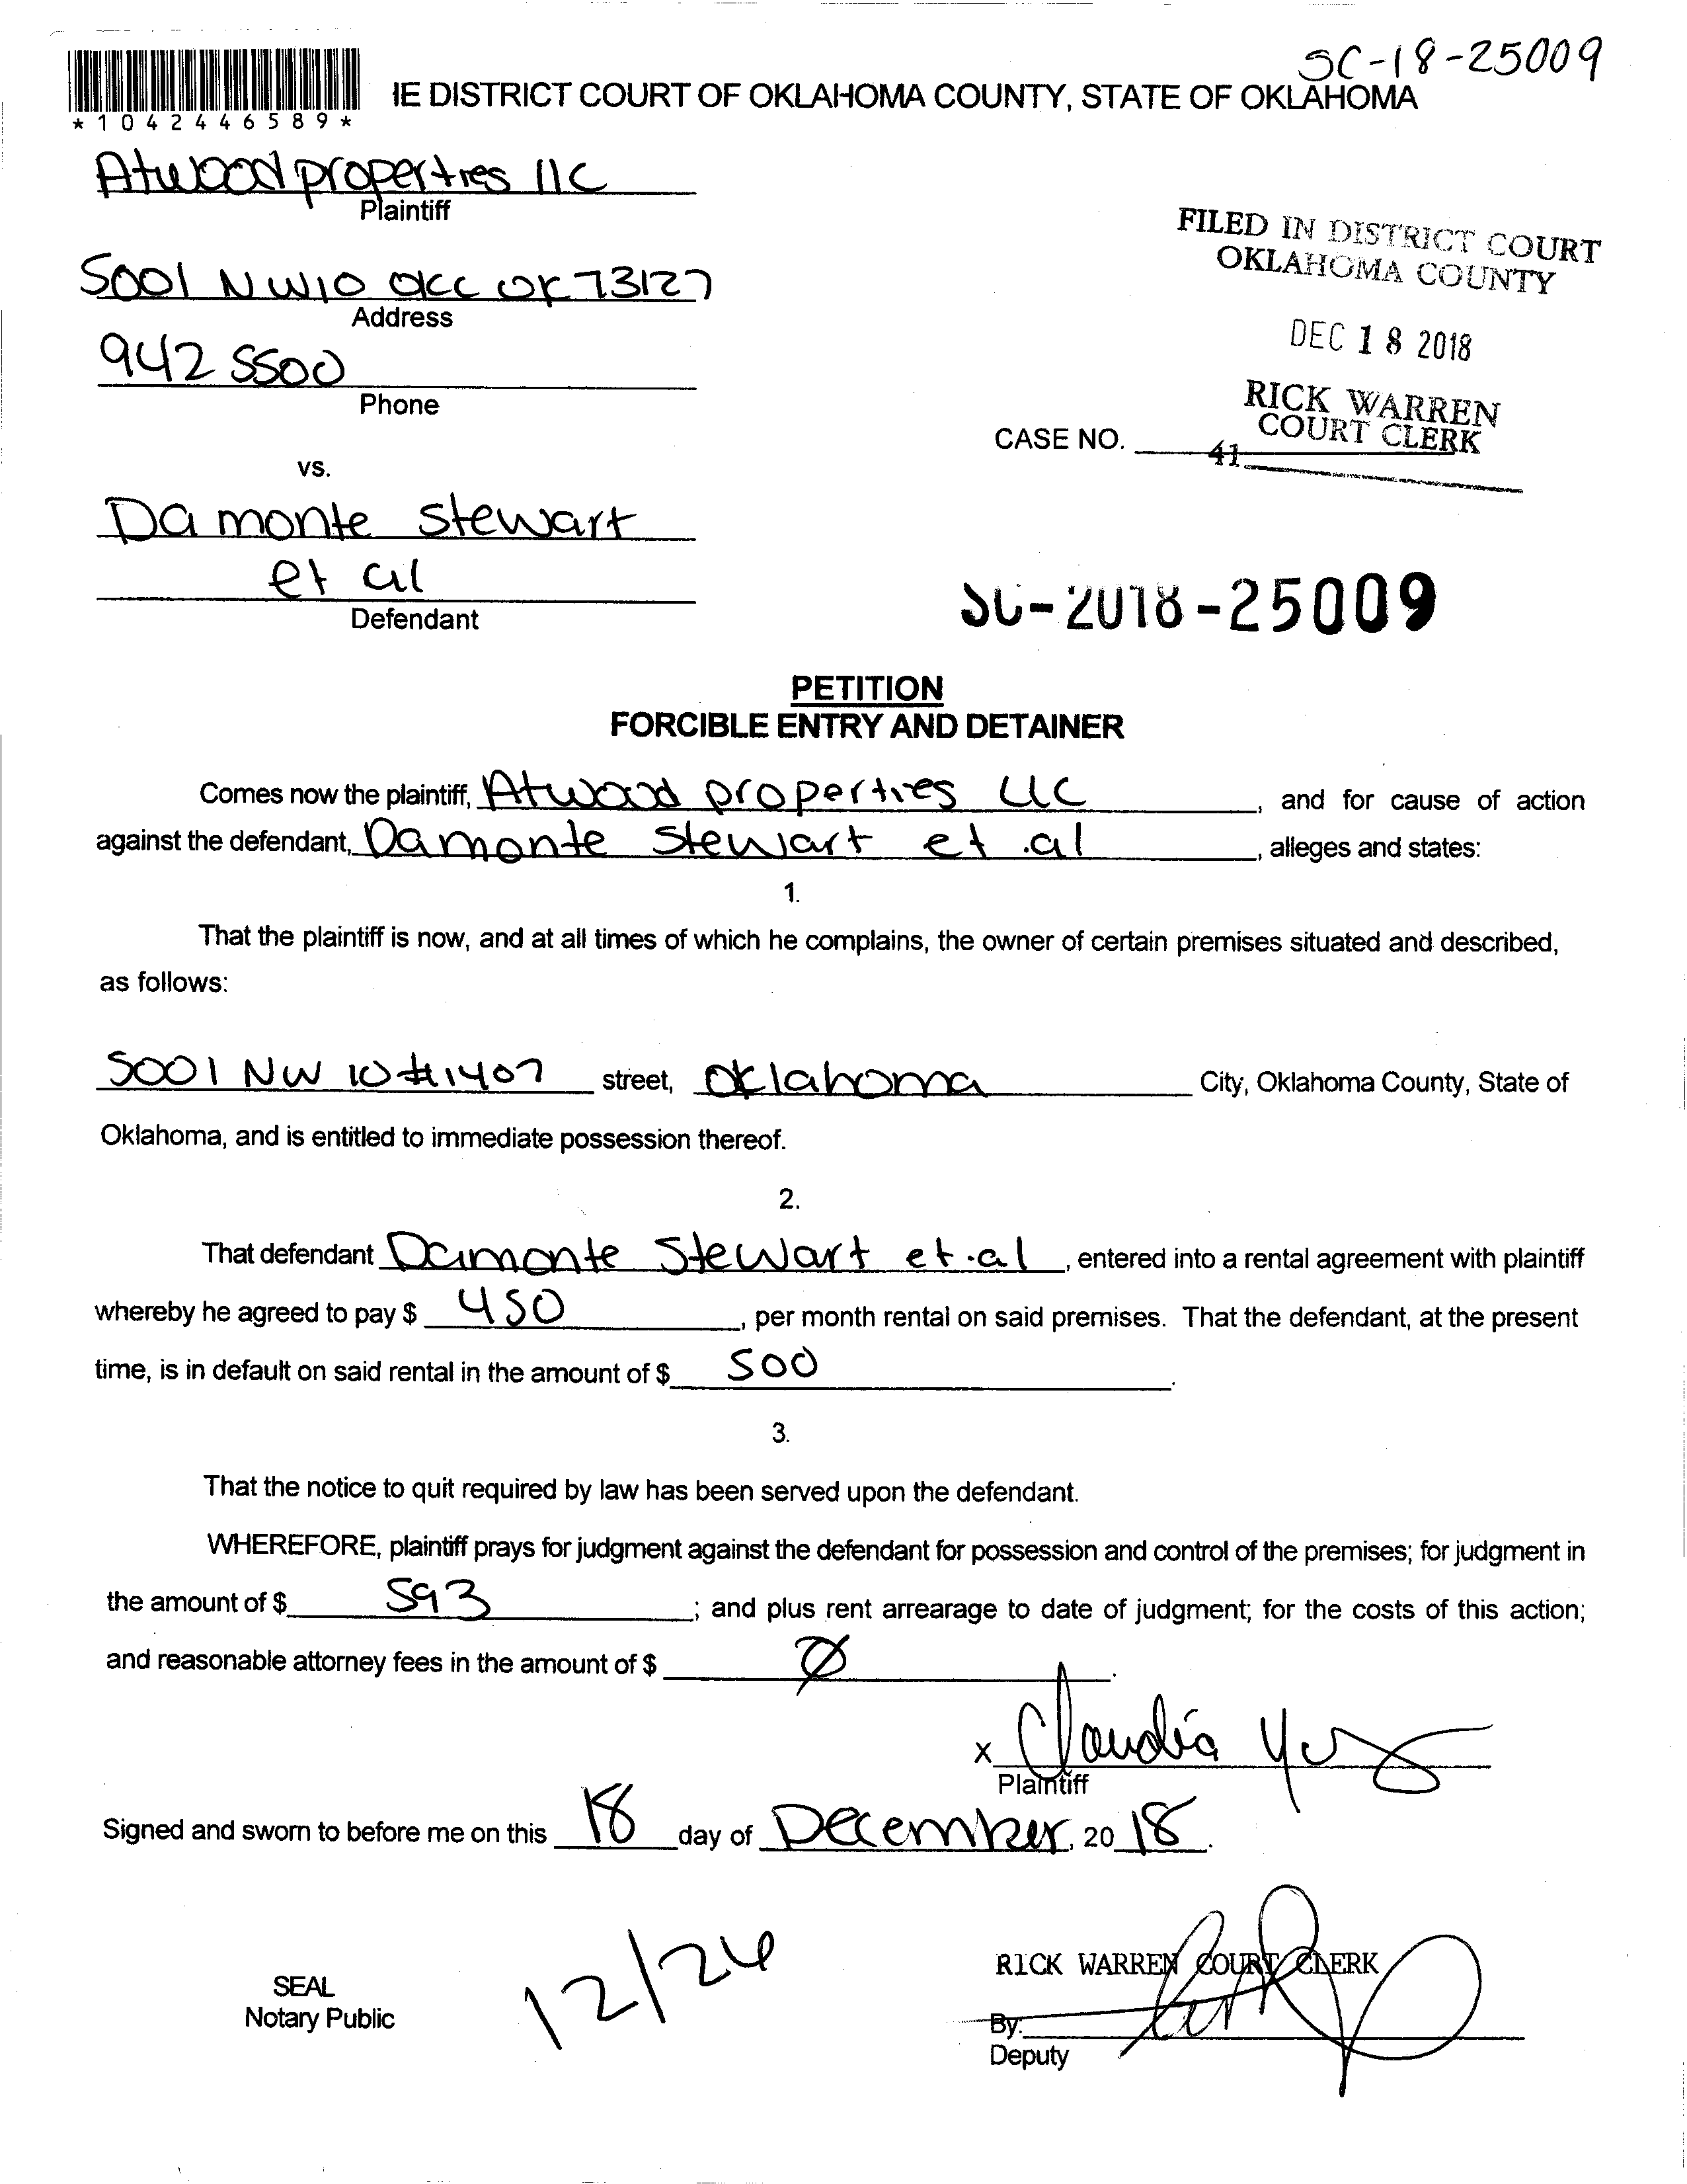 SC-18-25009
*1042446589*
IE DISTRICT COURT OF OKLAHOMA COUNTY, STATE OF OKLAHOMA
Atwood properties llc
Plaintiff
5001 NW10 OKC OK 73127
Address
942 5500
Phone
FILED IN DISTRICT COURT
OKLAHOMA COUNTY
DEC 18 2018
RICK WARREN
COURT CLERK
CASE NO.
41
vs.
Damonte Stewart
et al
Defendant
SC-2018-25009
PETITION
FORCIBLE ENTRY AND DETAINER
Comes now the plaintiff, Atwood properties LLC, and for cause of action
against the defendant, Damonte Stewart et.al, alleges and states:
1.
That the plaintiff is now, and at all times of which he complains, the owner of certain premises situated and described,
as follows:
5001 NW 10 #1407 street, Oklahoma City, Oklahoma County, State of
Oklahoma, and is entitled to immediate possession thereof.
2.
That defendant Damonte Stewart et.al, entered into a rental agreement with plaintiff
whereby he agreed to pay $ 450, per month rental on said premises. That the defendant, at the present
time, is in default on said rental in the amount of $ 500.
3.
That the notice to quit required by law has been served upon the defendant.
WHEREFORE, plaintiff prays for judgment against the defendant for possession and control of the premises; for judgment in
the amount of $ 593; and plus rent arrearage to date of judgment; for the costs of this action;
and reasonable attorney fees in the amount of $ Ø.
x Claudia
Plaintiff
Signed and sworn to before me on this 18 day of December, 20 18.
12/26
SEAL
Notary Public
RICK WARREN COURT CLERK
By:
Deputy